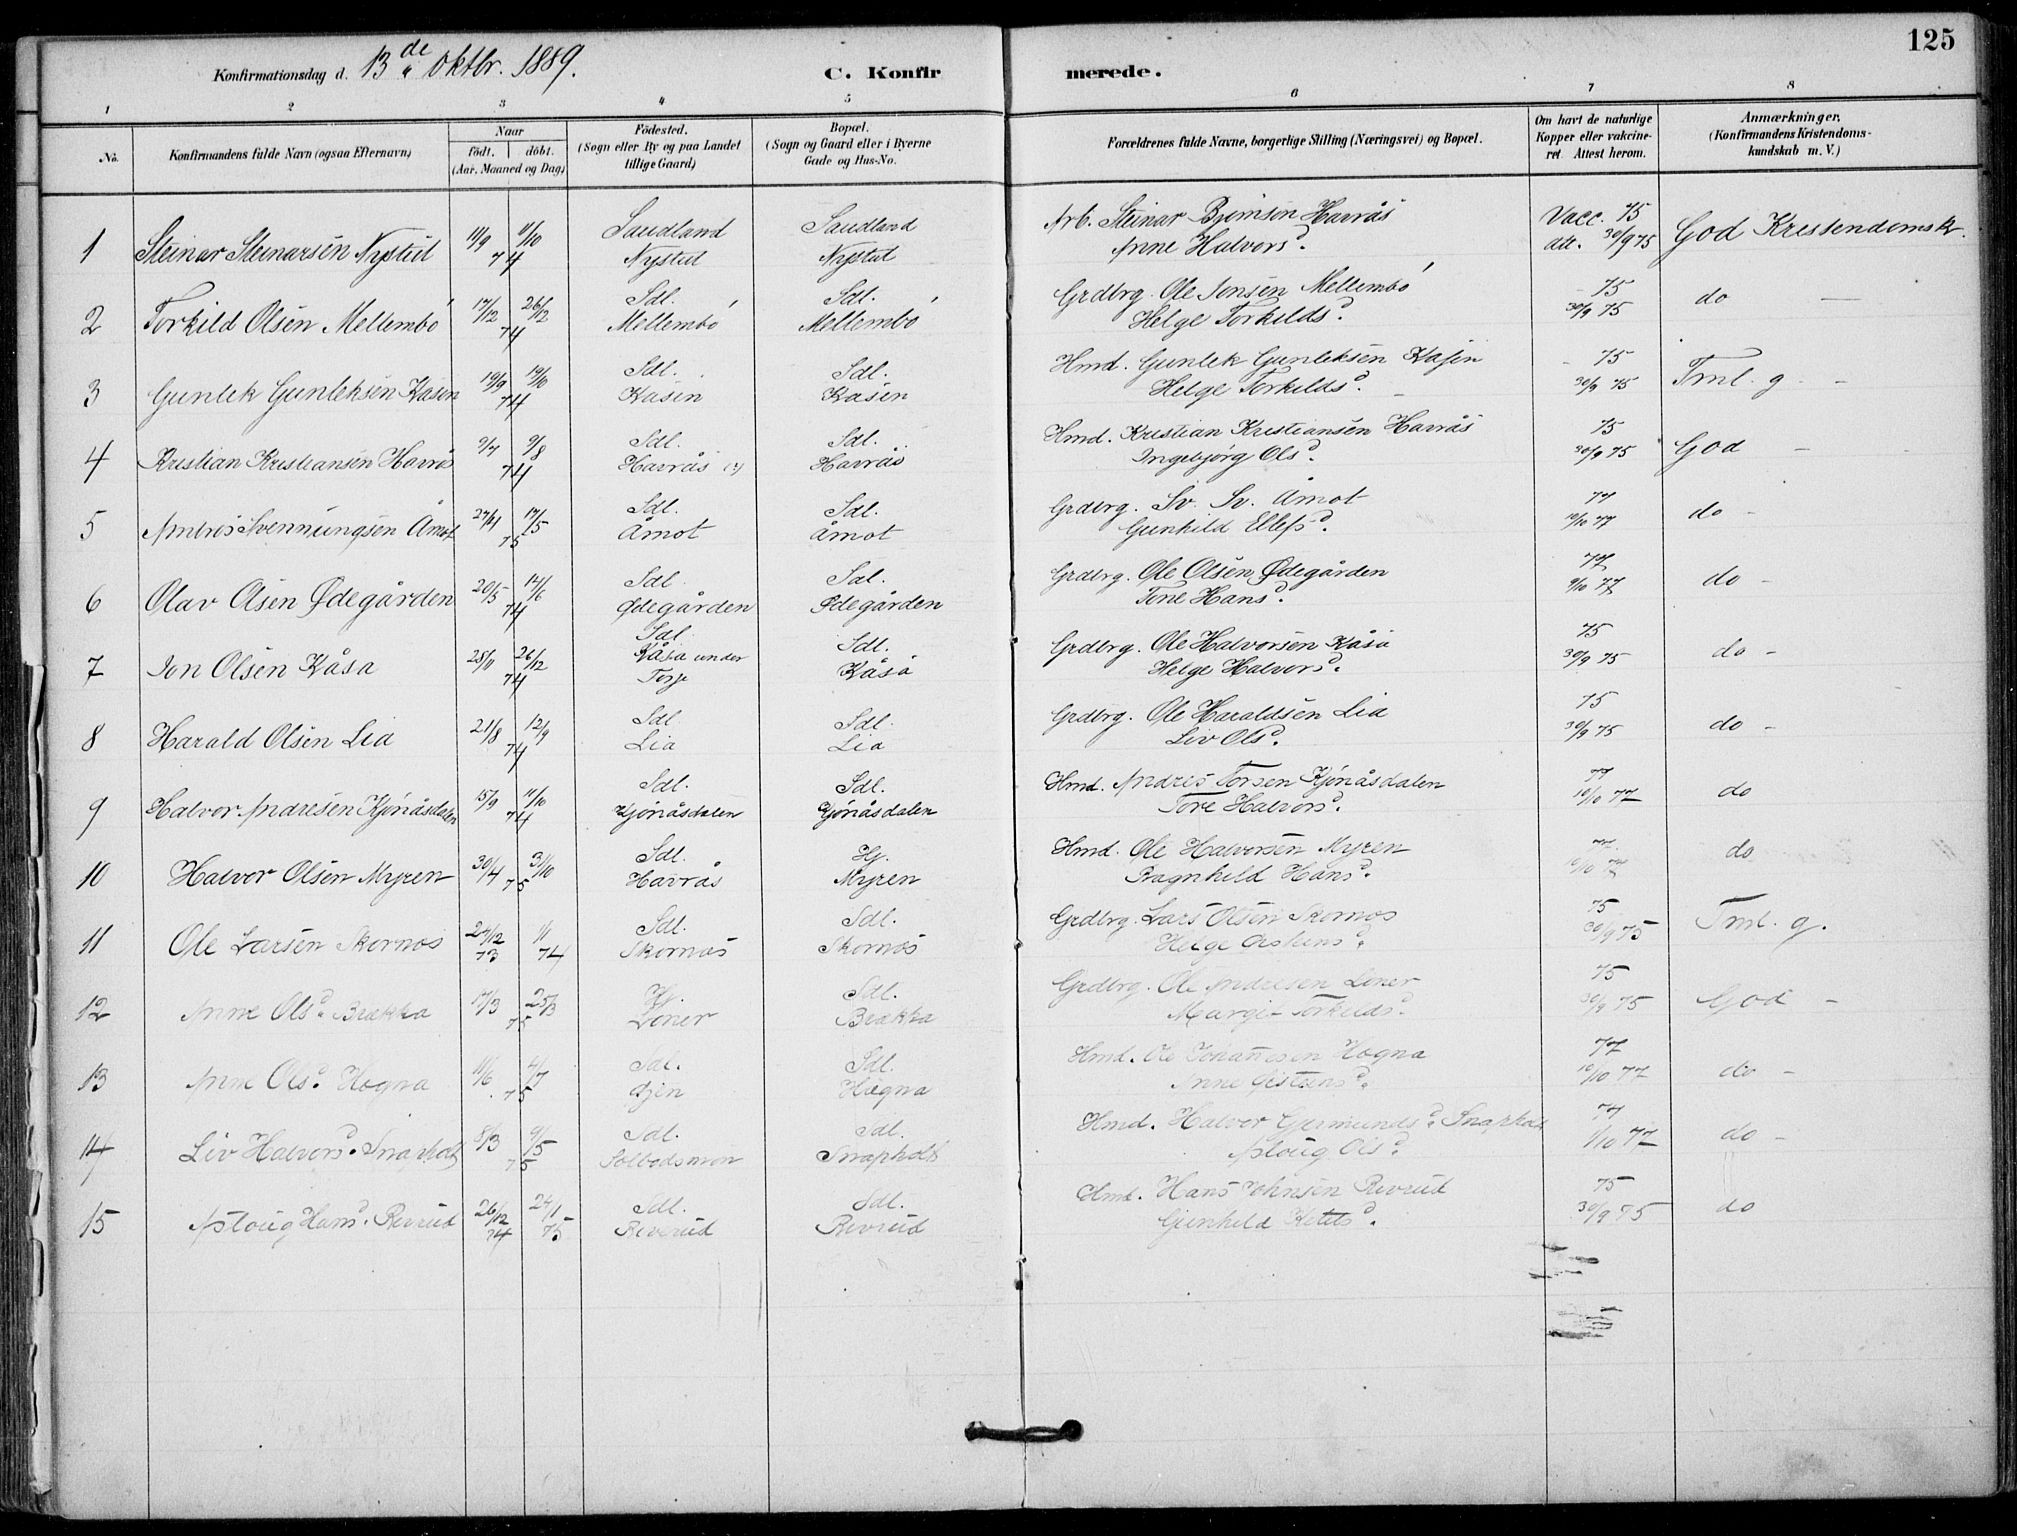 125
Konfirmationsdag d. 13de Oktbr. 1889.
C. Konfirmerede.
1 2 3 4 5 6 7 8
No.
Konfirmandens fulde Navn (ogsaa Efternavn)
Naar
födt. | döbt.
(Aar, Maaned og Dag)
Födested.
(Sogn eller By og paa Landet
tillige Gaard)
Bopæl.
(Sogn og Gaard eller i Byerne
Gade og Hus-No.
Forældrenes fulde Navne, borgerlige Stilling (Næringsvei) og Bopæl.
Om havt de naturlige
Kopper eller vakcine-
ret. Attest herom.
Anmærkninger,
(Konfirmandens Kristendoms-
kundskab m. V.)
1 Steinar Steinarsen Nystul 11/9 11/10 74 Saudland Nystul Saudland Nystul
Arb. Steinar Bjørnsøn Havrås Vacc. 75
Anne Halvorsd. att. 30/9 75 God Kristendomsk.
2 Torkild Olsen Mellembö 17/12 26/12 74 Sdl. Mellembö Sdl. Mellembö
Grdbrg. Ole Jonsen Mellembö 75
Helge Torkildsd. 30/9 75 do —
3 Gunlek Gunleksen Kåsen 19/9 19/10 74 Sdl. Kåsen Sdl. Kåsen
Hmd. Gunlek Gunleksen Kåsen 75
Helge Torkildsd. 30/9 75 Tml. g. —
4 Kristian Kristiansen Havrås 9/7 9/8 74 Sdl. Havrås Sdl. Havrås
Hmd. Kristian Kristiansen Havrås 75
Ingebjorg Olsd. 30/9 75 God —
5 Ambros Svennungsen Åmot 17/5 75 Sdl. Åmot Sdl. Åmot
Grdbrg. Sv. Sv. Åmot 77
Gunhild Ellefsd. 10/10 77 do —
6 Olav Olsen Ødegården 20/5 14/6 74 Sdl. Ødegården Sdl. Ødegården
Grdbrg. Ole Olsen Ødegården 77
Tone Hansd. 9/10 77 do —
7 Jon Olsen Kåsa 25/11 26/12 74 Sdl. Kåsa under Torje Sdl. Kåsa
Grdbrg. Ole Halvorsen Kåsa 75
Helge Halvorsd. 30/9 75 do —
8 Harald Olsen Lia 21/8 12/9 74 Sdl. Lia Sdl. Lia
Grdbrg. Ole Haraldsen Lia 75
Liv Olsd. 30/9 75 do —
9 Halvor Andresen Kjönåsdalen 15/9 11/10 74 Sdl. Kjönåsdalen Sdl. Kjönåsdalen
Hmd. Andres Torsen Kjönåsdalen 77
Tore Halvorsd. 10/10 77 do
10 Halvor Olsen Myren 30/4 31/10 75 Sdl. Havrås Hj. Myren
Hmd. Ole Halvorsen Myren 77
Ragnhild Hansd. 10/10 77 do
11 Ole Larsen Skornos 27/12 73 1/1 74 Sdl. Skornos Sdl. Skornos
Grdbrg. Lars Olsen Skornos 75
Helge 30/9 75 Tml. g.
12 Anne Olsd. Brækka 17/3 25/3 75 Hj. Loner Sdl. Brækka
Grdbrg. Ole Andresen Loner 75
Margit Torkildsd. 30/9 75 God —
13 Anne Olsd. Høgna 11/6 4/7 75 Sdl. Sdl. Høgna
Hmd. Ole Johannesen Høgna 77
Anne 10/10 77 do —
14 Liv Halvorsd. Snapholt 8/3 9/5 75 Sdl. Sdl. Snapholt
Hmd. Halvor Germundsd. Snapholt 77
Asloug Olsd. 1/10 77 do —
15 Asloug Hansd. Revrud 26/12 74 24/1 75 Sdl. Reverud Sdl. Revrud
Hmd. Hans Johnsen Revrud 75
Gunhild Ketilsd. 30/9 75 do